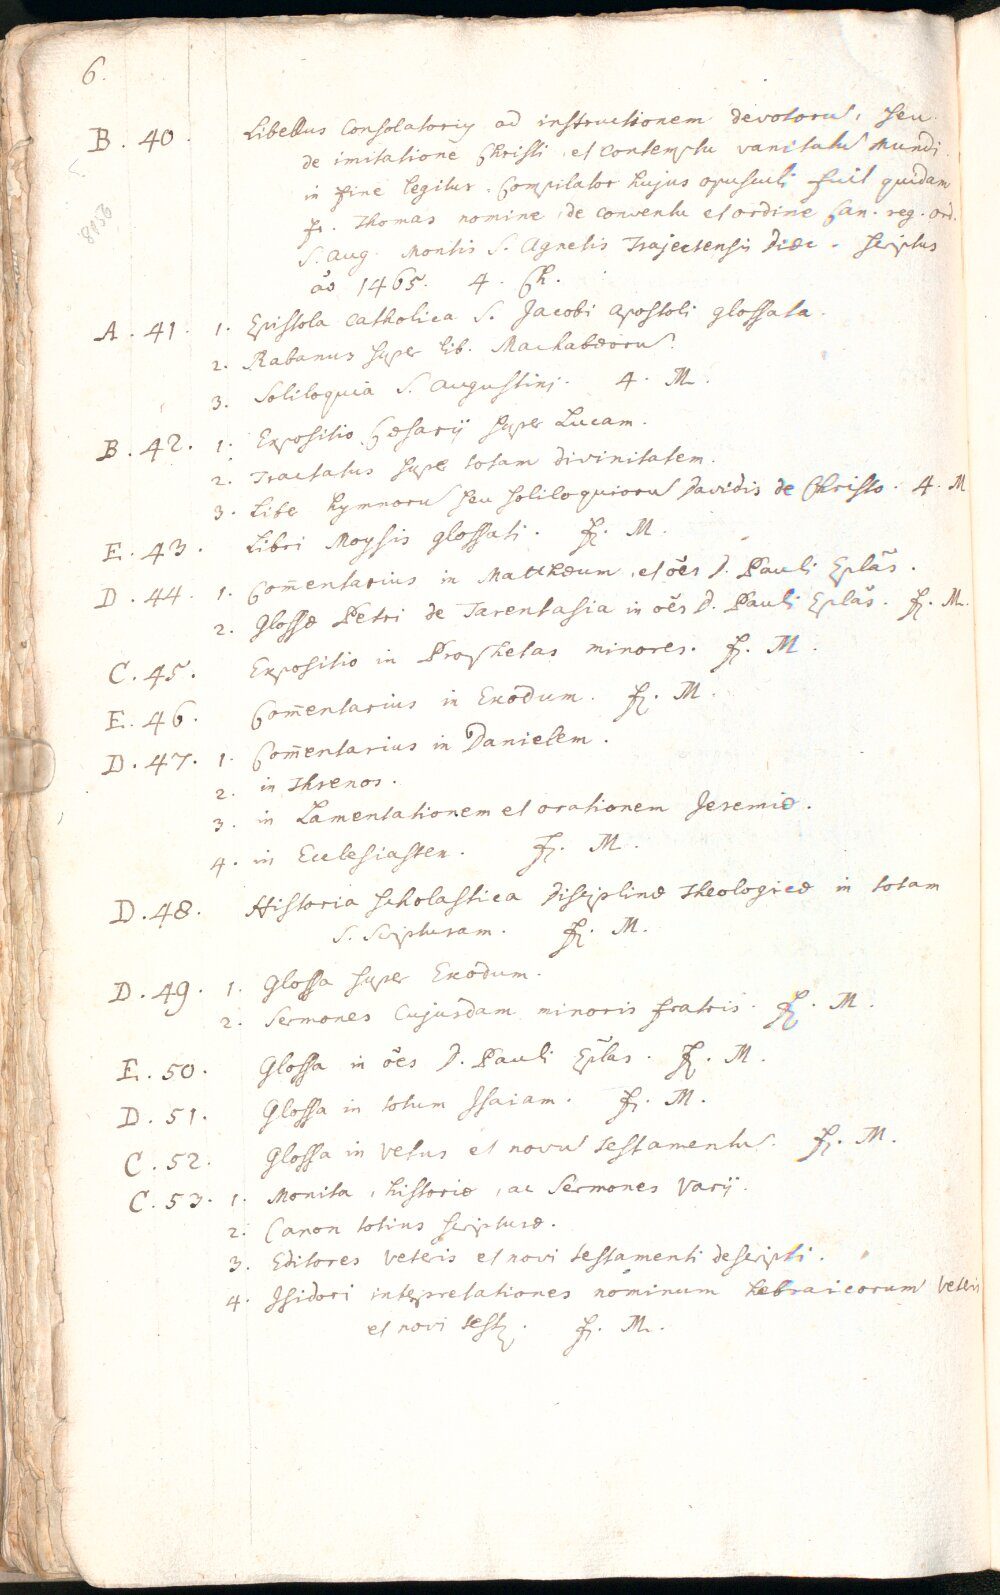 6.
B. 40. Libellus Consolatorius ad instructionem devotorū, seu
de imitatione Christi, et Contemptu vanitatū Mundi.
in fine legitur. Compilator hujus opusculi fuit quidam
fr. Thomas nomine, de conventu et ordine Can. reg. ord.
S. Aug. Montis S. Agnetis Trajectensis Diæc. scriptus
aō 1465. 4. Ch.
A. 41. 1. Epistola Catholica S. Jacobi Apostoli glossata.
2. Rabanus super lib. Machabæorū.
3. Soliloquia S. Augustini. 4. M.
B. 42. 1. Expositio Cæsarij super Lucam.
2. Tractatus super totam divinitatem.
3. Liber hymnorū seu soliloquiorū Davidis de Christo. 4. M
E. 43. Libri Moysis glossati. f. M.
D. 44. 1. Com̄entarius in Matthæum, et oēs D. Pauli Eplās.
2. Glossæ Petri de Tarentasia in oēs D. Pauli Eplās. f. M.
C. 45. Expositio in Prophetas minores. f. M.
E. 46. Com̄entarius in Exodum. f. M.
D. 47. 1. Com̄entarius in Danielem.
2. in Threnos.
3. in Lamentationem et orationem Jeremiæ.
4. in Ecclesiasten. f. M.
D. 48. Historia scholastica Disciplinæ Theologicæ in totam
S. Scripturam. f. M.
D. 49. 1. Glossa super Exodum.
2. Sermones Cujusdam minoris fratris. f. M.
E. 50. Glossa in oēs D. Pauli Ep̄las. f. M.
D. 51. Glossa in totum Isaiam. f. M.
C. 52. Glossa in vetus et novū testamentū. f. M.
C. 53. 1. Monita, historiæ, ac Sermones Varij.
2. Canon totius scripturæ.
3. Editores veteris et novi testamenti descripti.
4. Isidori interpretationes nominum hebraicorum veteris
et novi test. f. M.